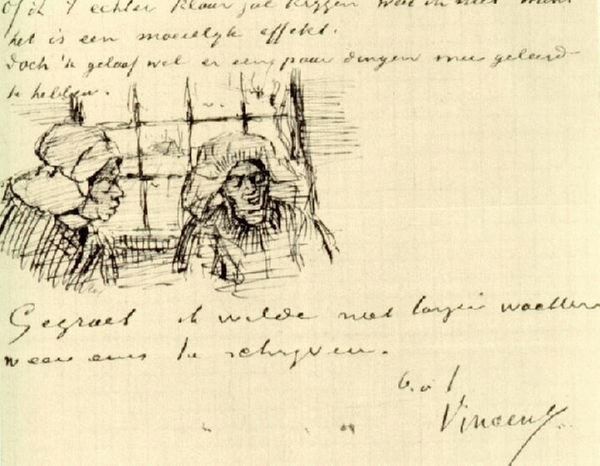 Of ik 't echter klaar zal krijgen weet ik niet want
het is een moeielyk effekt.
Doch 'k geloof wel er een paar dingen mee geleerd
te hebben.
Gegroet ik wilde niet langer wachten
weer eens te schryven.
b. à t
Vincent